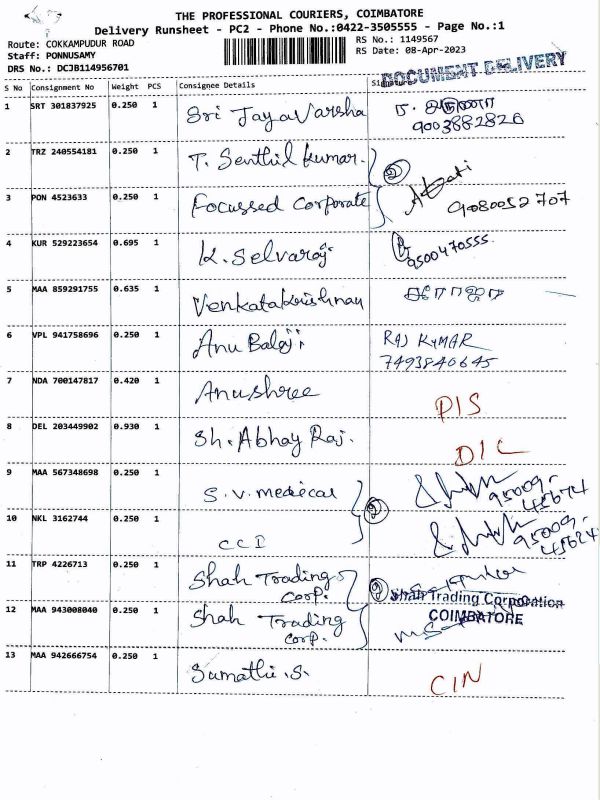 THE PROFESSIONAL COURIERS, COIMBATORE
Delivery Runsheet - PC2 - Phone No.:0422-3505555 - Page No.:1
Route: COKKAMPUDUR ROAD
RS No.: 1149567
Staff: PONNUSAMY
RS Date: 08-Apr-2023
DRS No.: DCJB114956701
DOCUMENT DELIVERY
S No Consignment No Weight PCS Consignee Details Signature
1 SRT 301837925 0.250 1 Sri JayaVarsha
9003882826
2 TRZ 240554181 0.250 1 T. Senthil kumar. 2
3 PON 4523633 0.250 1 Focussed Corporate
9080052707
4 KUR 529223654 0.695 1 K. Selvaraj
9500470555
5 MAA 859291755 0.635 1 Venkatakrishnan
6 VPL 941758696 0.250 1 Anu Balaji RAJ KUMAR
7493840645
7 NDA 700147817 0.420 1 Anushree PIS
8 DEL 203449902 0.930 1 Sh. Abhay Raj. DIL
9 MAA 567348698 0.250 1 S.V. medical 2
95009-
45674
10 NKL 3162744 0.250 1 CCD
95009-
45624
11 TRP 4226713 0.250 1 Shah Trading
Corp. 2 Shah Trading Corporation
12 MAA 943008040 0.250 1 Shah Trading COIMBATORE
Corp.
13 MAA 942666754 0.250 1 Sumathi .S. CIN